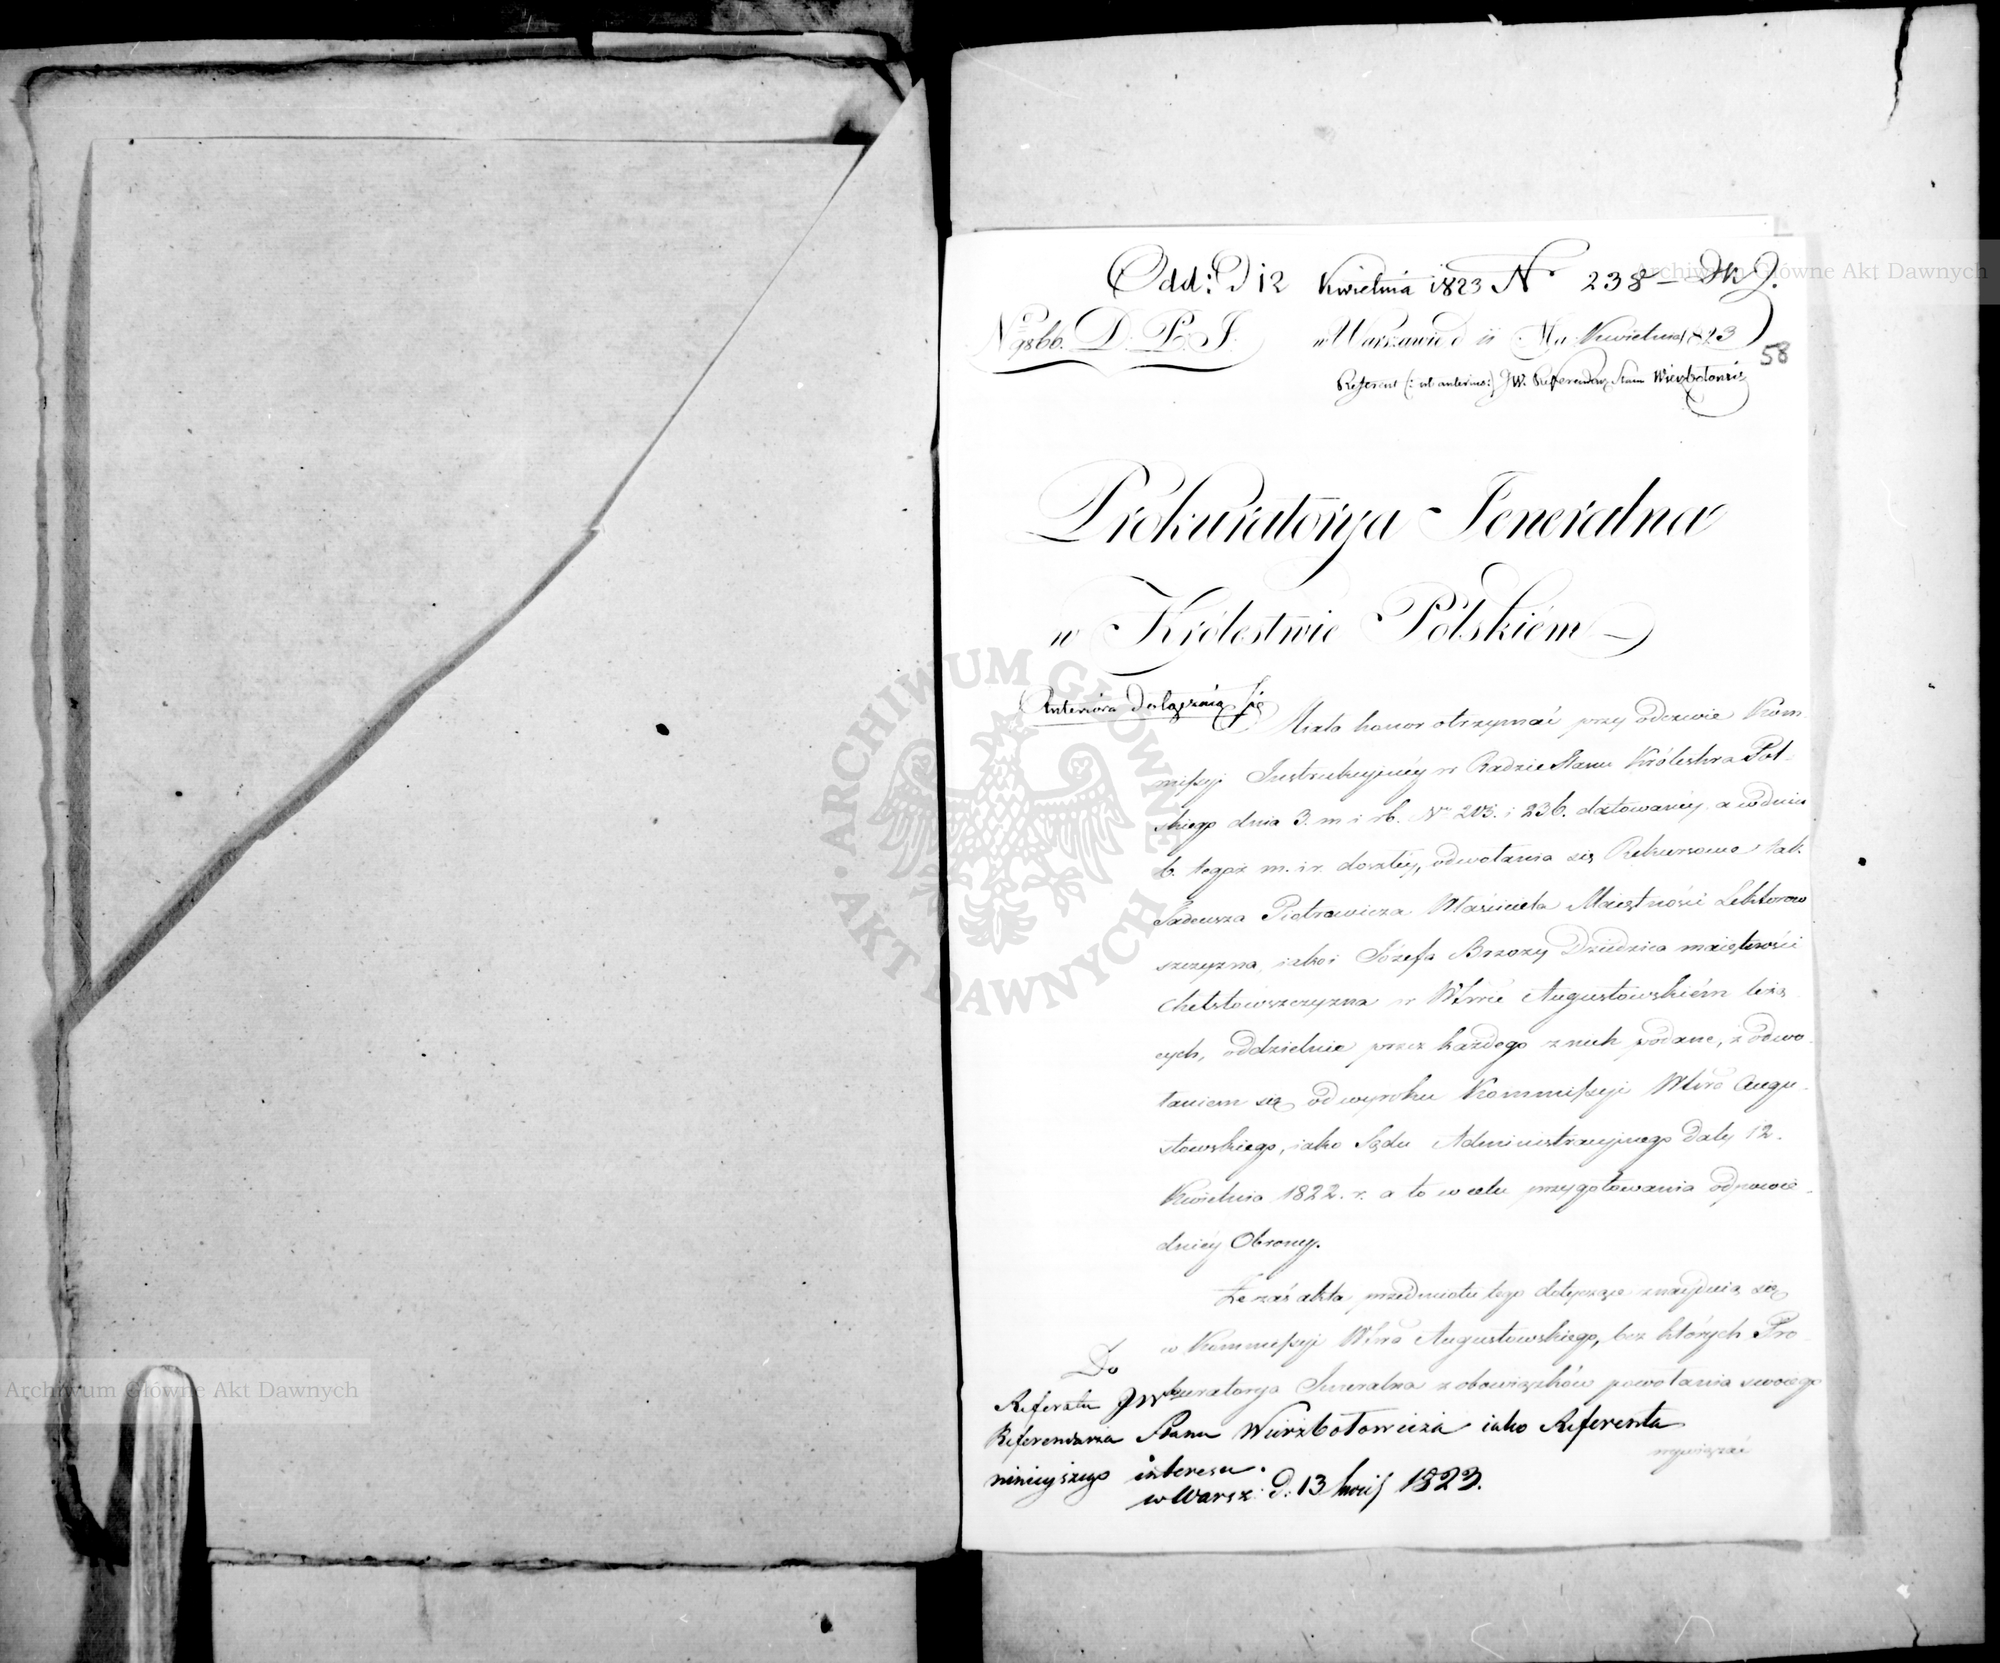 Odd: D 12 Kwietnia 1823 N 238 Dk J.
No 9866. D. P. J. w Warszawie d 11 Ma Kwietnia 1823
58
Referent (: ut anterius :) JW. Referendarz Stanu Wierzbołowicz
Prokuratorya Jeneralna
w Królestwie Polskiém
Anteriora dołączaią się
Miała honor otrzymać przy odezwie Kom-
missyi Instrukcyinéy w Radzie Stanu Królestwa Pol-
skiego dnia 3. m i rb. No 205. i 236. datowanéy a w dniu
6. tegoż m. i r. doszłéy, odwołania się Rekursowe tak
Tadeusza Piotrowicza Właściciela Maiętności Lektorow
szczyzna, iako i Józefa Brzozy Dziedzica maiętności
Chełstowszczyzna w Wtwie Augustowskiém leżą
cych, oddzielnie przez każdego z nich podane, z odwo-
łaniem się od wyroku Kommissyi Wtwa Augu-
stowskiego, iako Sądu Administracyjnego daty 12.
Kwietnia 1822. r. a to w celu przygotowania odpowie-
dniéy Obrony.
Że zaś akta przedmiotu tego dotyczące znayduią się
w Kommissyi Wtwa Augustowskiego, bez których Pro-
kuratorya Jeneralna z obowiązków powołania swoiego
wywiązać
Do
Referatu JW
Referendarza Stanu Wierzbołowicza iako Referenta
ninieyszego interesu.
w Warsz: d: 13 kwiet 1823.
ARCHIWUM GŁÓWNE AKT DAWNYCH
Archiwum Główne Akt Dawnych
Archiwum Główne Akt Dawnych